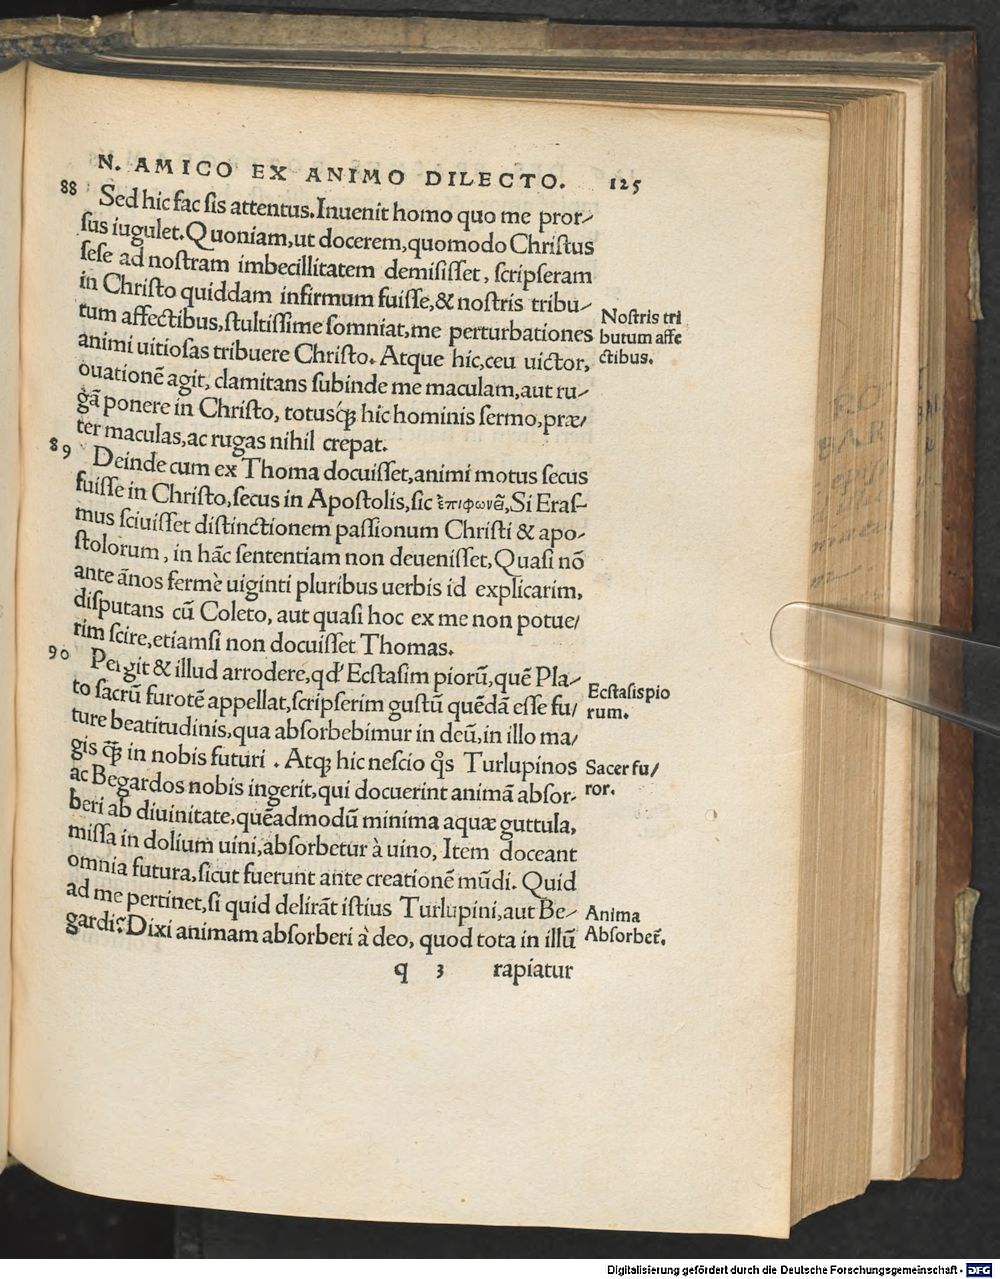 N. AMICO EX ANIMO DILECTO. 125
88 Sed hic fac sis attentus. Inuenit homo quo me pror-
sus iugulet. Quoniam, ut docerem, quomodo Christus
sese ad nostram imbecillitatem demisisset, scripseram
in Christo quiddam infirmum fuisse, & nostris tribu-
tum affectibus, stultissime somniat, me perturbationes
animi uitiosas tribuere Christo. Atque hic, ceu uictor,
ouationē agit, clamitans subinde me maculam, aut ru-
gā ponere in Christo, totusq́ꝫ hic hominis sermo, præ-
ter maculas, ac rugas nihil crepat.
Nostris tri
butum affe
ctibus.
89 Deinde cum ex Thoma docuisset, animi motus secus
fuisse in Christo, secus in Apostolis, sic ἐπιφωνεῖ, Si Eras-
mus sciuisset distinctionem passionum Christi & apo-
stolorum, in hāc sententiam non deuenisset, Quasi nō
ante ānos fermè uiginti pluribus uerbis id explicarim,
disputans cū Coleto, aut quasi hoc ex me non potue/
rim scire, etiamsi non docuisset Thomas.
90 Pergit & illud arrodere, qd' Ecstasim piorū, quē Pla-
to sacrū furorē appellat, scripserim gustū quēdā esse fu/
ture beatitudinis, qua absorbebimur in deū, in illo ma/
gis q̄ꝫ in nobis futuri. Atqꝫ hic nescio q̊s Turlupinos
ac Begardos nobis ingerit, qui docuerint animā absor-
beri ab diuinitate, quēadmodū minima aquæ guttula,
missa in dolium uini, absorbetur à uino, Item doceant
omnia futura, sicut fuerunt ante creationē mūdi. Quid
ad me pertinet, si quid delirāt istius Turlupini, aut Be-
gardi? Dixi animam absorberi à deo, quod tota in illū
Ecstasis pio
rum.
Sacer fu/
ror.
Anima
Absorbet̄.
q 3 rapiatur
Digitalisierung gefördert durch die Deutsche Forschungsgemeinschaft - DFG